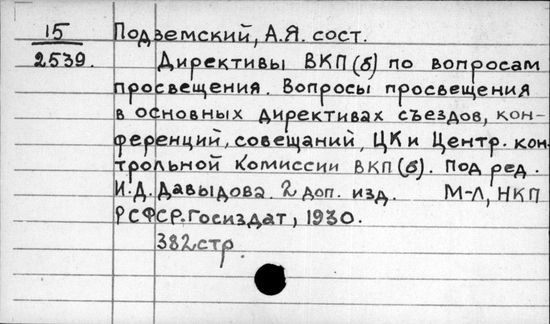 15 Подземский, А.Я. сост.
2539. Директивы ВКП(б) по вопросам
просвещения. Вопросы просвещения
в основных директивах съездов, кон-
ференций, совещаний, ЦК и Центр. кон-
трольной Комиссии ВКП(б). Под ред.
И.Д. Давыдова. 2 доп. изд. М-Л, НКП
РСФСР. Госиздат, 1930.
382 стр.